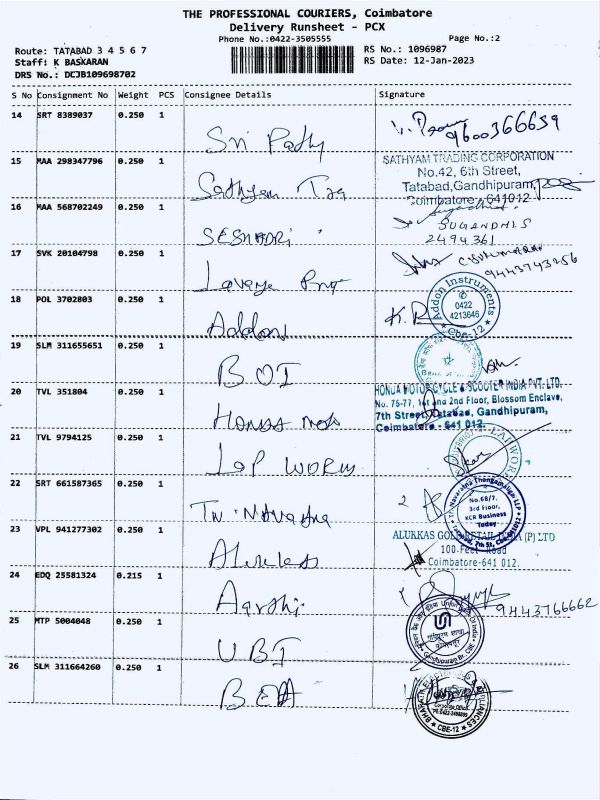 THE PROFESSIONAL COURIERS, Coimbatore
Delivery Runsheet - PCX
Phone No.:0422-3505555
Page No.:2
Route: TATABAD 3 4 5 6 7
Staff: K BASKARAN
DRS No.: DCJB109698702
RS No.: 1096987
RS Date: 12-Jan-2023
S No Consignment No Weight PCS Consignee Details Signature
14 SRT 8389037 0.250 1
Sri Pathy
9600366659
15 MAA 298347796 0.250 1
Sathyam Tra
SATHYAM TRADING CORPORATION
No.42, 6th Street,
Tatabad,Gandhipuram,
Coimbatore - 641012
16 MAA 568702249 0.250 1
SESHADRI
SUGANDHI.S
2494361
17 SVK 20104798 0.250 1
9443743256
18 POL 3702803 0.250 1
Addon
K.R
Addon Instruments
0422
4213646
CBE-12
19 SLM 311655651 0.250 1
BOI
20 TVL 351804 0.250 1
Honda
HONDA MOTORCYCLE & SCOOTER INDIA PVT. LTD.
No. 76-77, 1st and 2nd Floor, Blossom Enclave,
7th Street, Tatabad, Gandhipuram,
Coimbatore - 641 012.
21 TVL 9794125 0.250 1
Lap WORLD
22 SRT 661587365 0.250 1
No.68/7,
3rd Floor,
KCR Business
Today
7th St,
23 VPL 941277302 0.250 1
ALUKKAS GOLD RETAIL INDIA (P) LTD
100-Feet Road
Coimbatore-641 012.
24 EDQ 25581324 0.215 1
Aarthi
9443766662
25 MTP 5004048 0.250 1
UBI
26 SLM 311664260 0.250 1
BEA
CBE-12